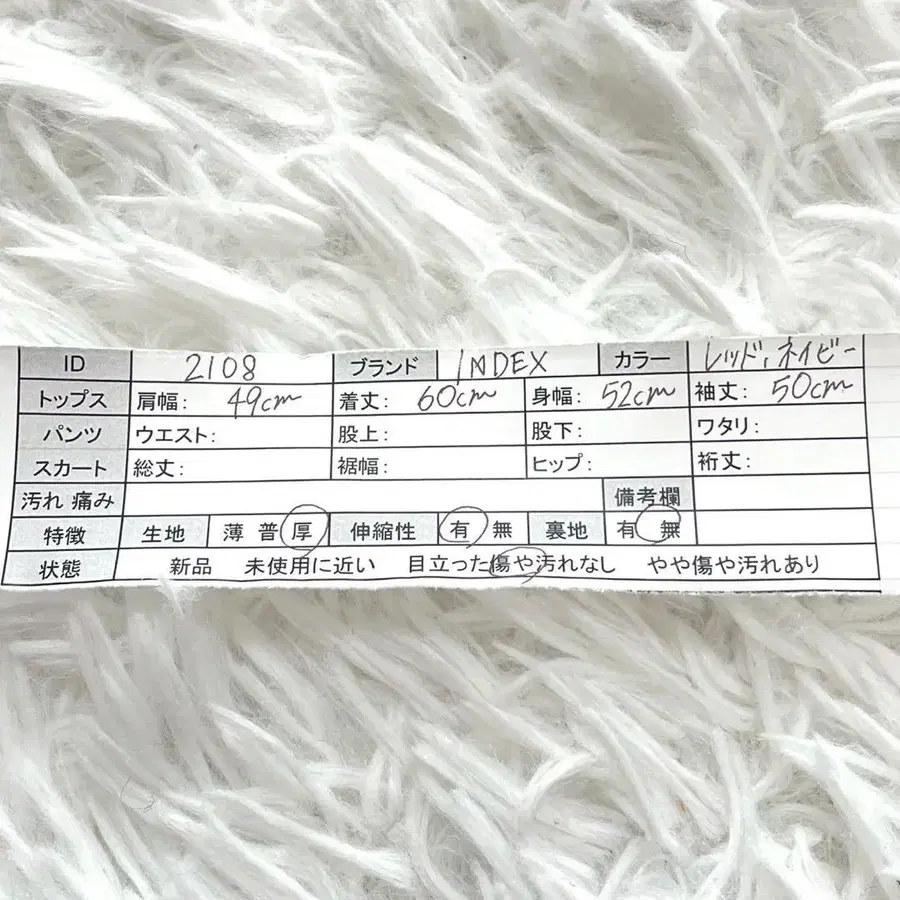 ID 2108 ブランド INDEX カラー レッド、ネイビー
トップス 肩幅: 49cm 着丈: 60cm 身幅: 52cm 袖丈: 50cm
パンツ ウエスト: 股上: 股下: ワタリ:
スカート 総丈: 裾幅: ヒップ: 裄丈:
汚れ 痛み 備考欄
特徴 生地 薄 普 厚 伸縮性 有 無 裏地 有 無
状態 新品 未使用に近い 目立った傷や汚れなし やや傷や汚れあり